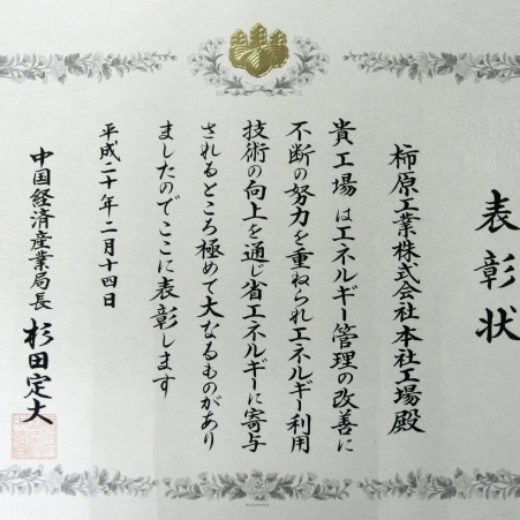 表彰状
柿原工業株式会社本社工場殿
貴工場はエネルギー管理の改善に
不断の努力を重ねられエネルギー利用
技術の向上を通じ省エネルギーに寄与
されるところ極めて大なるものがあり
ましたのでここに表彰します
平成二十年二月十四日
中国経済産業局長 杉田定大